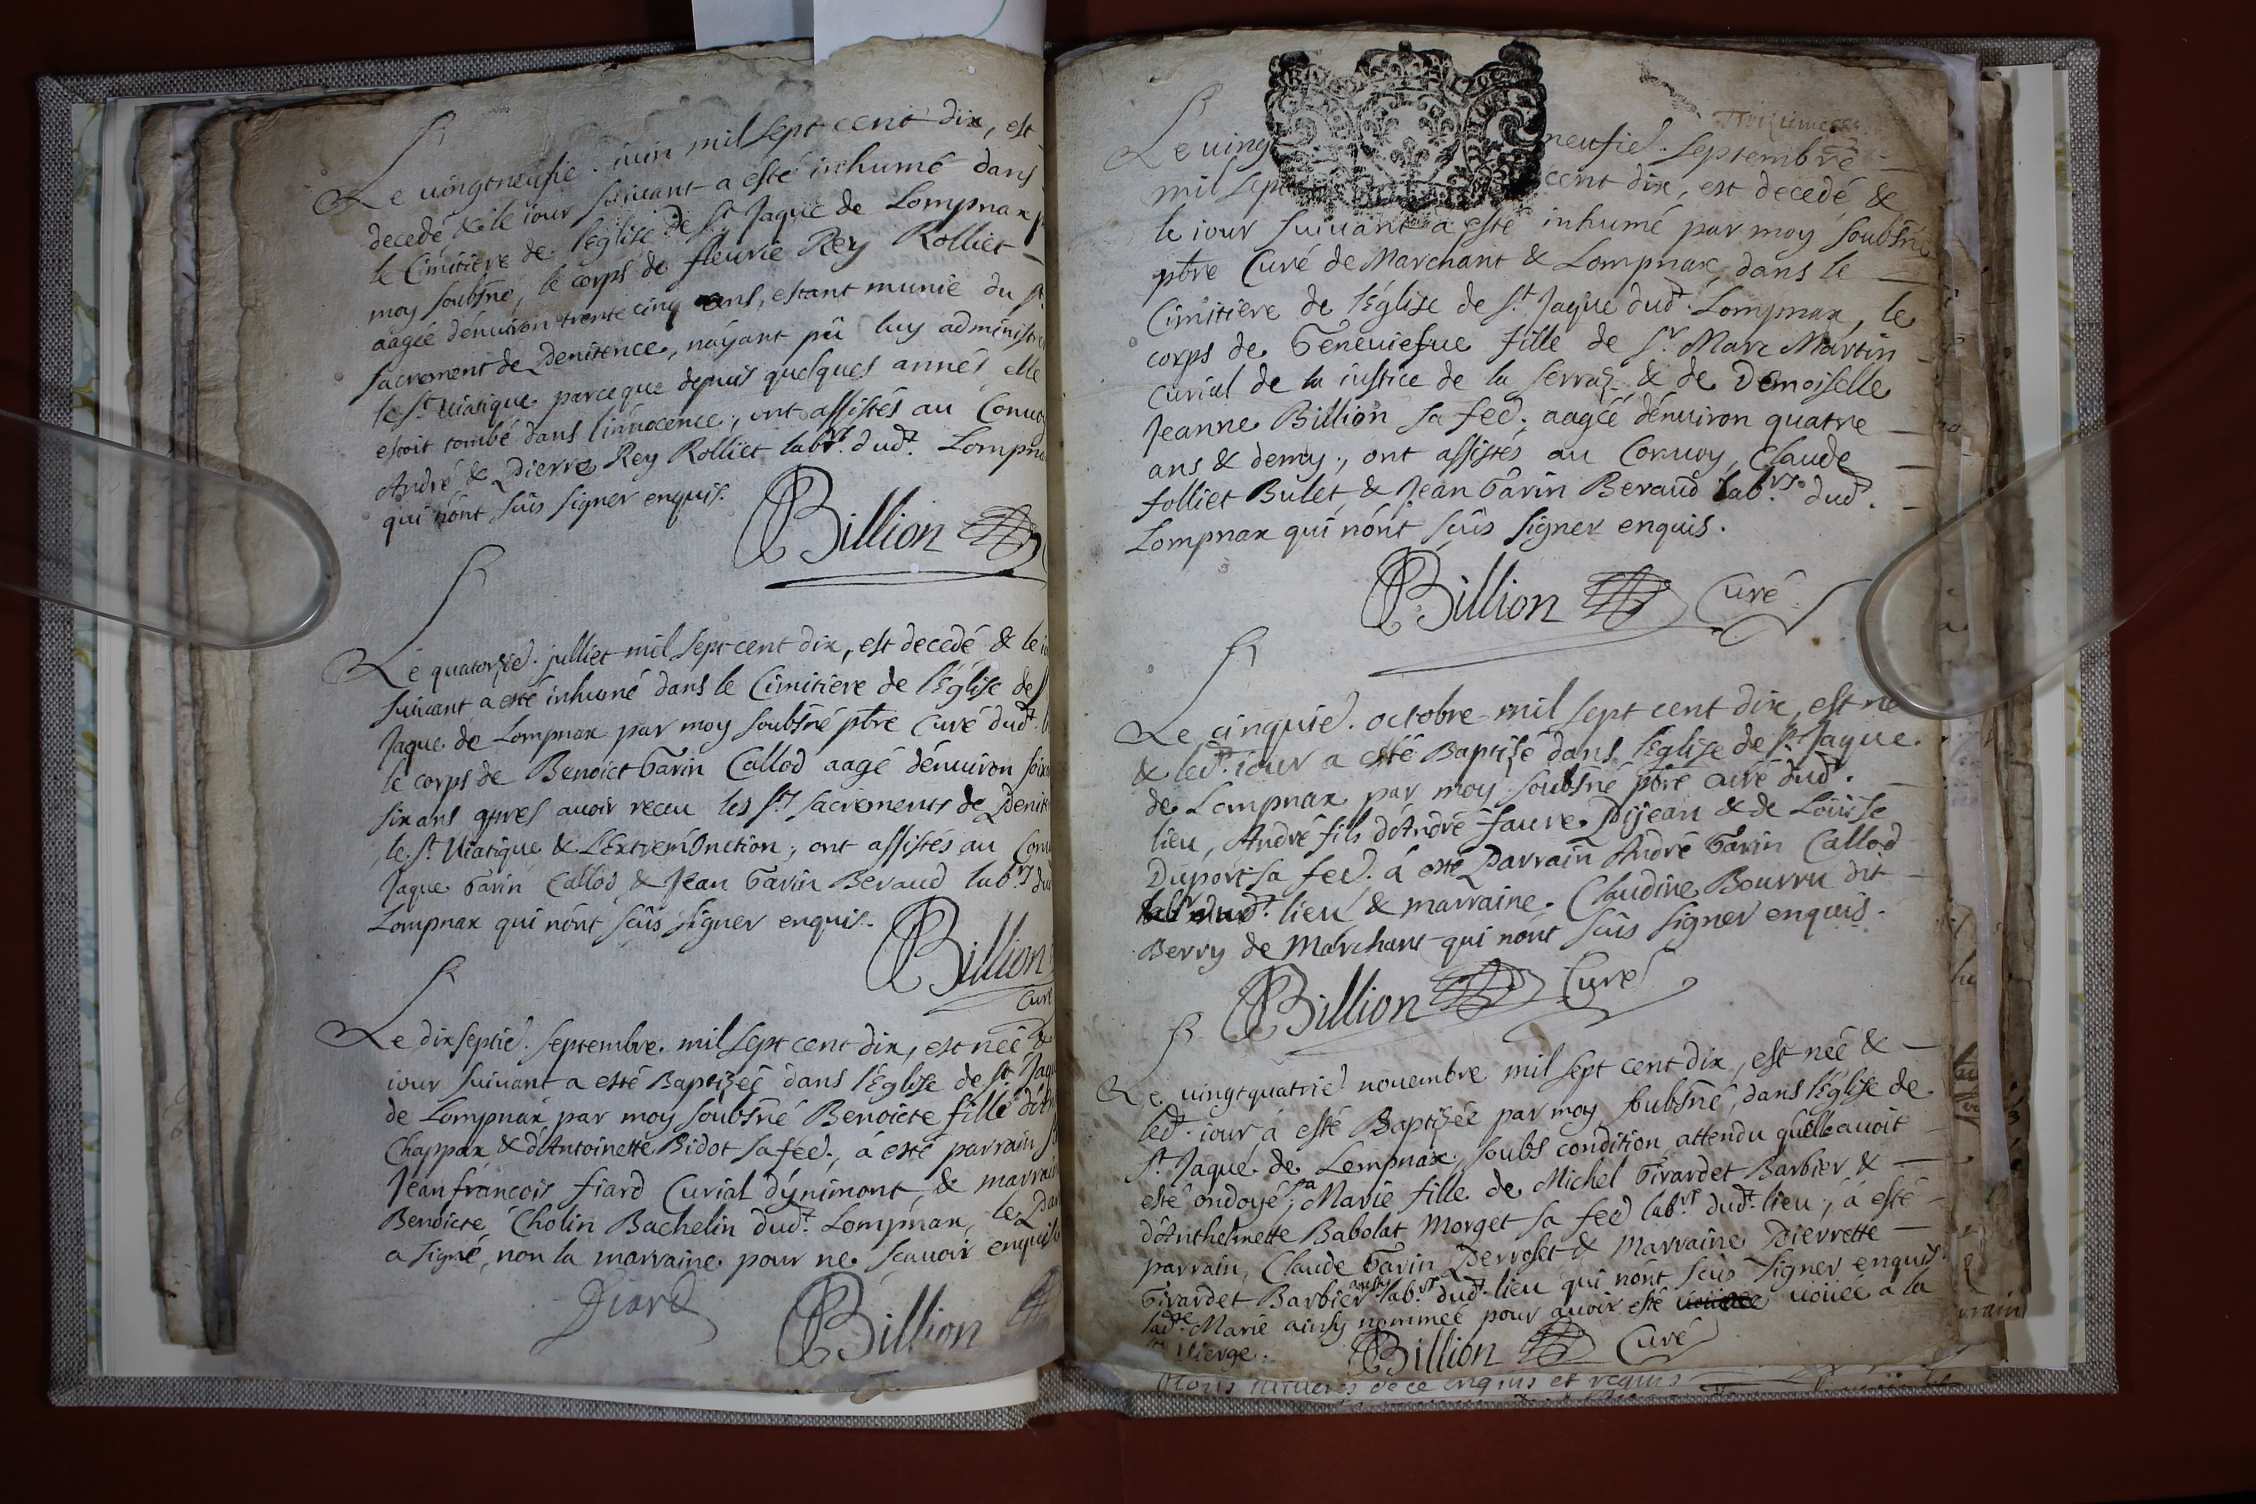 Le vingtneufie. iuin mil sept cent dix, est
decedé & le iour suivant a esté inhumé dans
le Cimitiere de l'Eglise de St Jaque de Lompnax
moy soubsné, le corps de fleurie Rey Rolliet
aagée dénuiron trente cinq ans, estant munie du St
sacrement de Penitence, náyant pû luy administre
le St Viatique parceque depuis quelques annés elle
estoit tombé dans l'innocence, ont assistés au Convoy
André & Pierre Rey Rolliet labrs. dudt. Lompnax
qui nónt sûs signer enquis.
Billion
Le quatorzie. julliet mil sept cent dix, est decedé & le
suivant a esté inhumé dans le Cimitiere de l'Eglise de St
Jaque de Lompnax par moy soubsné ptre Curé dudt.
le corps de Benoict Garin Callod aagé dénuiron soixan
six ans apres avoir receu les Sts sacrements de Penite
le St Viatique & l'ExtremOnction, ont assistés au Conv
Jaque Garin Callod & Jean Garin Beraud labrs du
Lompnax qui nónt sûs signer enquis.
Billion
Curé
Le dixseptie. septembre mil sept cent dix, est née &
iour suivant a esté Baptizée dans l'Eglise de St Jaqu
de Lompnax par moy soubsné Benoicte fille
Chappax & d'Antoinette Bidot sa fee., á esté parrain
Jean françois fiard Curial dýnimont & marrain
Benoicte Cholin Bachelin dudt Lompnax, le Par
a signé, non la marraine pour ne scavoir enquis
fiard
Billion
Le ving neufie. septembre
mil sept cent dix, est decedé &
le iour suivant a esté inhumé par moy soubsné
ptre Curé de Marchant & Lompnax, dans le
Cimitiere de l'Eglise de St Jaque dudt. Lompnax, le
corps de Généviefve fille de Sr. Marc Martin
curial de la iustice de la Serraz & de Demoiselle
Jeanne Billion sa fee. aagéé dénuiron quatre
ans & demy, ont assistés au Convoy, Claude
folliet Bulet & Jean Garin Beraud labrs. dudt.
Lompnax qui nónt sûs signer enquis.
Billion Curé
Le cinquie. octobre mil sept cent dix, est né
& ledt. iour a esté Baptizé dans l'Eglise de St Jaque
de Lompnax par moy soubsné ptre curé dudt.
lieu, André fils d'André faure Dijean & de Loüise
Duport sa fee. á esté Parrain André Garin Callod
labr dudt. lieu & marraine Claudine Bourru dit
Berry de Marchant qui nónt sûs signer enquis.
Billion Curé
Le vingtquatrie novembre mil sept cent dix, est née &
ledt. iour á esté Baptizée par moy soubsné, dans l'Eglise de
St. Jaque de Lompnax, soubs condition attendu quélle avoit
esté ondoyé, Marie fille de Michel Girardet Barbier &
d'Anthelmette Babolat Morget sa fee labrs. dudt. lieu, á esté
parrain, Claude Garin Perroset & Marraine Pierrette
Girardet Barbier labrs. dudt lieu qui nónt sçus signer enquis.
ladte. Marie ainsy nommée pour avoir esté voüée á la
ste Vierge.
Billion Curé